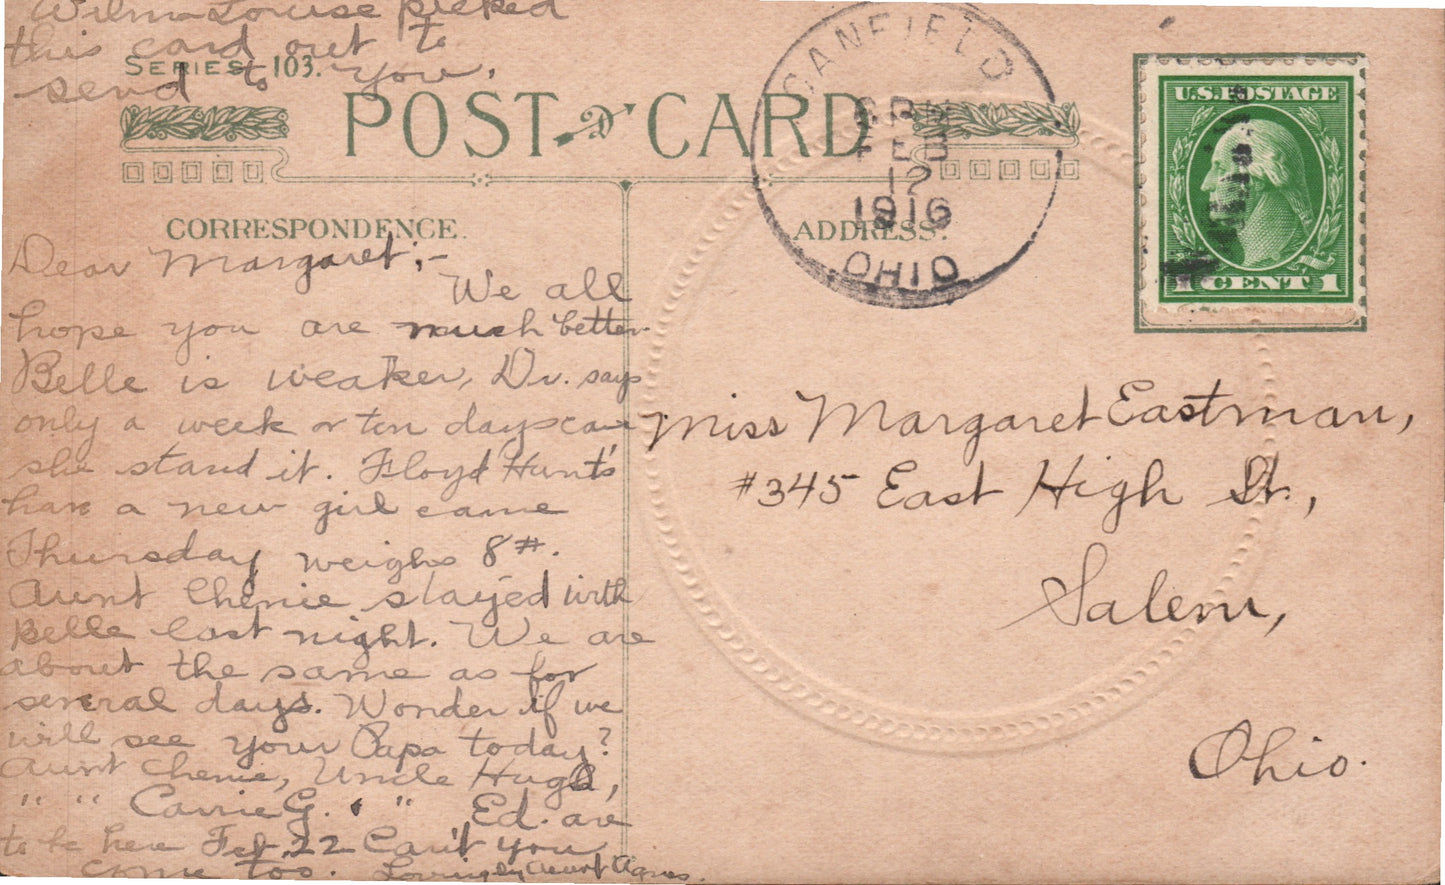 Wilma Louise picked
this card out to
send to you.
SERIES 103.
POST CARD
CORRESPONDENCE.
ADDRESS.
CANFIELD
6 PM
FEB
17
1916
OHIO
U.S. POSTAGE
1 CENT 1
Dear Margaret;-
We all
hope you are much better
Belle is weaker, Dr. says
only a week or ten days can
she stand it. Floyd Hunt's
have a new girl came
Thursday weighs 8#.
Aunt Chenie stayed with
Belle last night. We are
about the same as for
several days. Wonder if we
will see your Papa today?
Aunt Chenie, Uncle Hugh,
" " Carrie G. " Ed. are
to be here Feb. 22 Can't you
come too. Lovingly Aunt Agnes.
Miss Margaret Eastman,
#345 East High St.,
Salem,
Ohio.